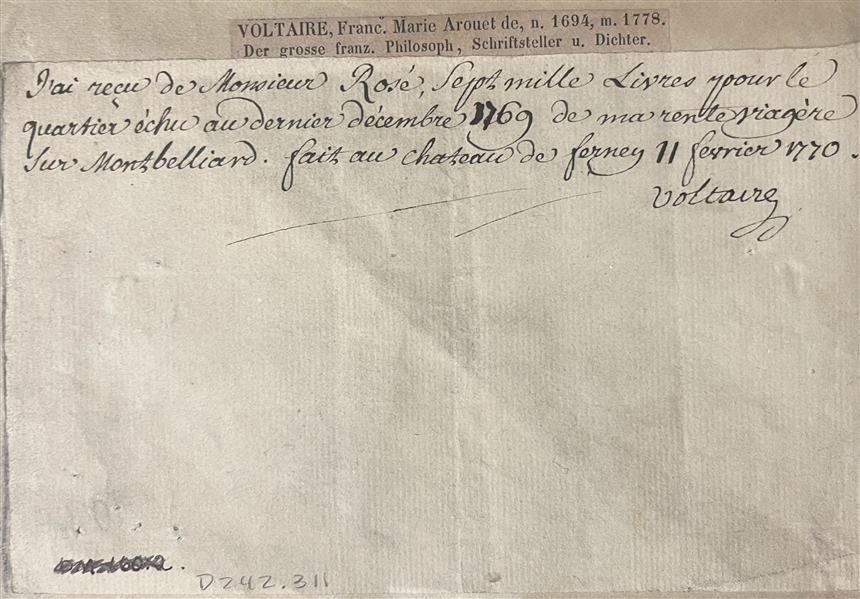 VOLTAIRE, Franc. Marie Arouet de, n. 1694, m. 1778.
Der grosse franz. Philosoph, Schriftsteller u. Dichter.
J'ai reçu de Monsieur Rosé, Sept mille Livres pour le
quartier échu au dernier décembre 1769 de ma rente viagère
sur Montbelliard. fait au chateau de ferney 11 fevrier 1770.
Voltaire
D242.311